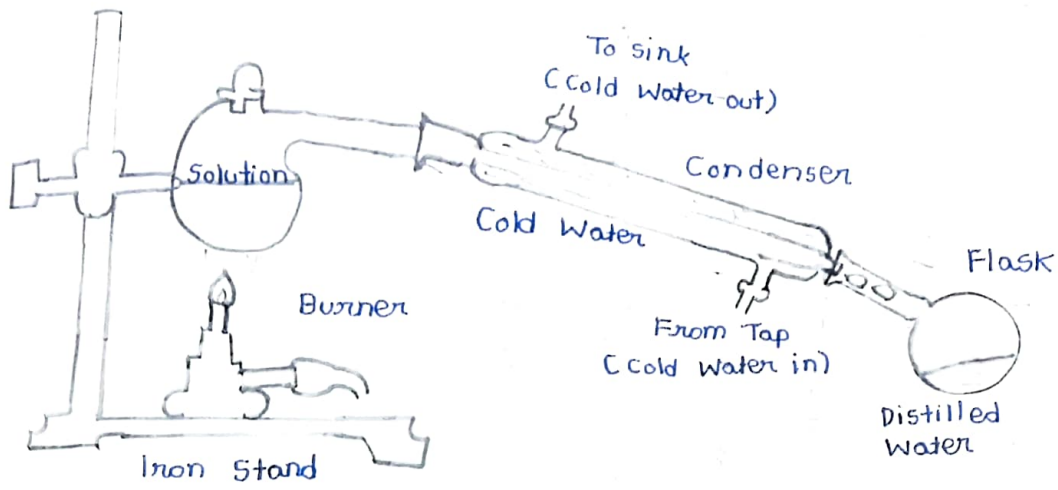 To sink
(Cold Water out)
Solution
Condenser
Cold Water
Flask
Burner
From Tap
(Cold Water in)
Distilled
Water
Iron Stand